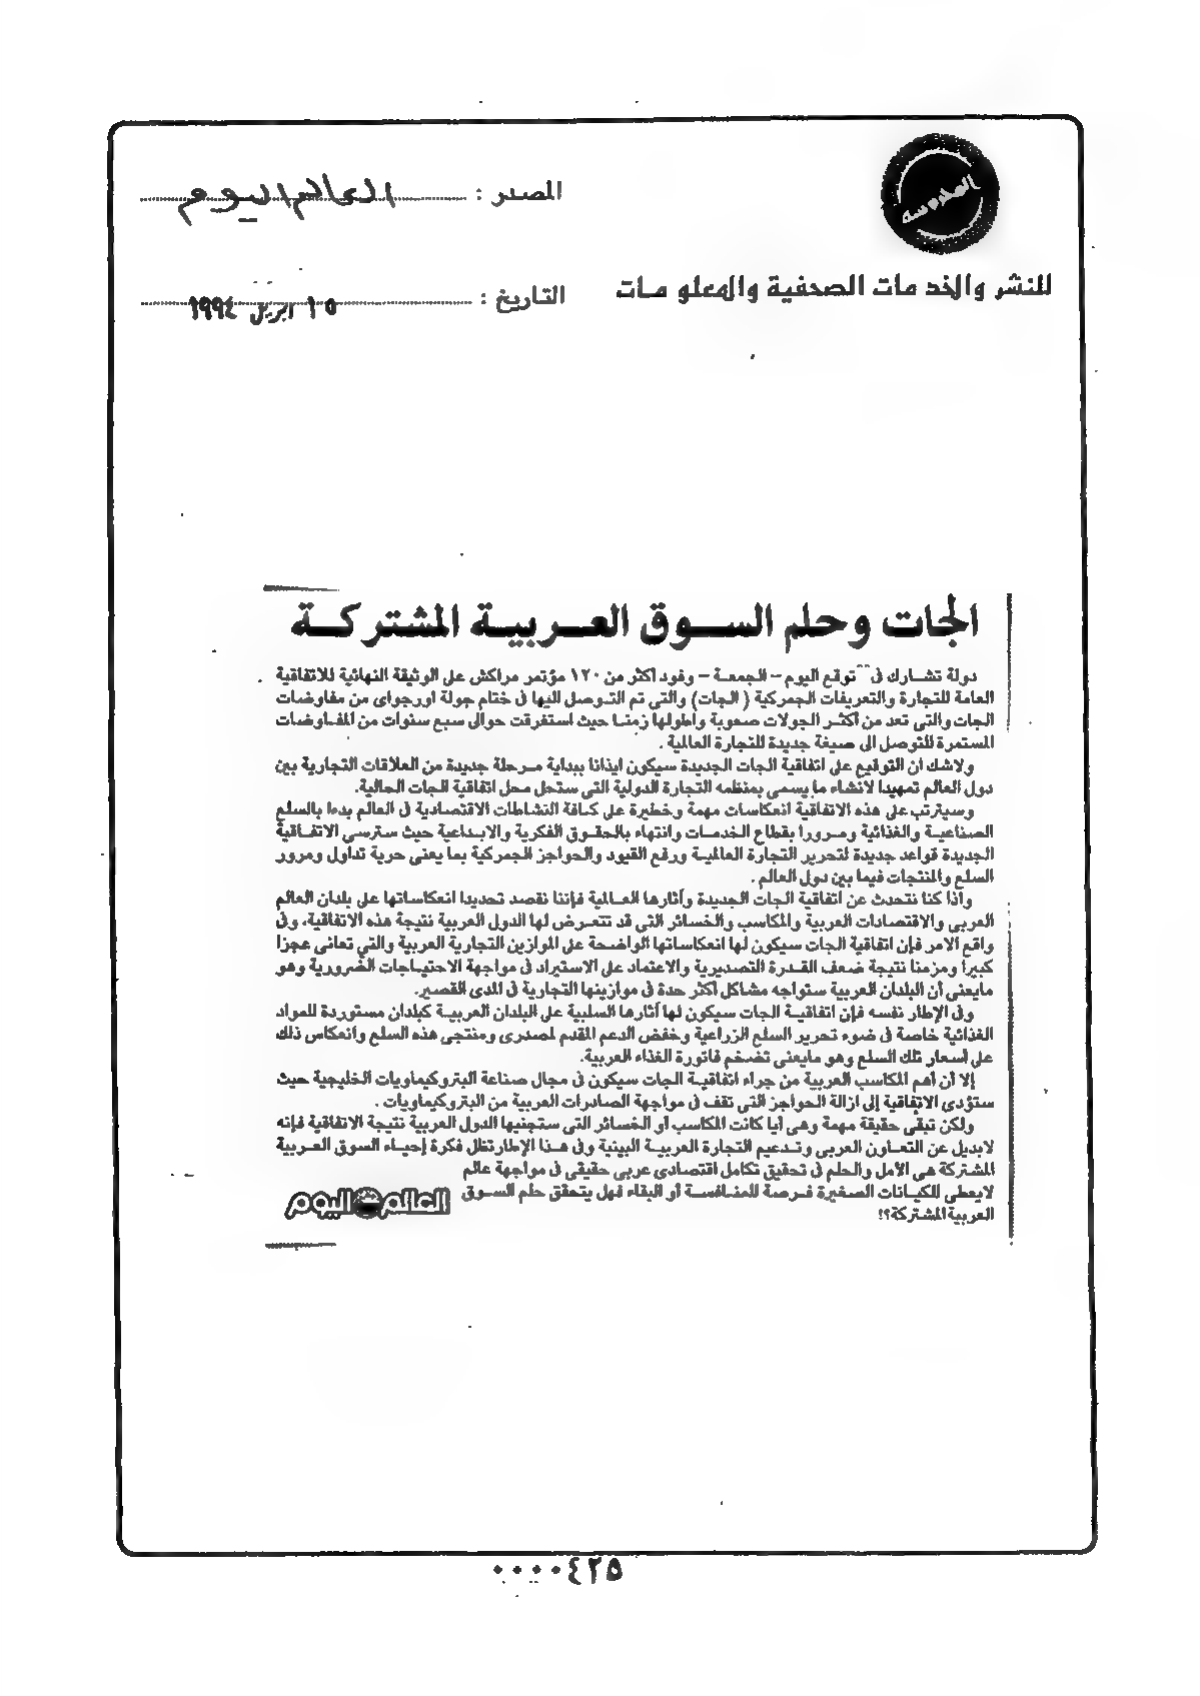 المحروسة
للنشر والخدمات الصحفية والمعلومات
المصدر : العالم اليوم
التاريخ : ١٥ ابريل ١٩٩٤
الجات وحلم السوق العربية المشتركة
دولة تشارك فى توقع اليوم - الجمعة - وفود اكثر من ١٢٠ مؤتمر مراكش على الوثيقة النهائية للاتفاقية
العامة للتجارة والتعريفات الجمركية ( الجات) والتى تم التوصل اليها فى ختام جولة اورجواى من مفاوضات
الجات والتى تعد من اكثر الجولات صعوبة واطولها زمنا حيث استغرقت حوالى سبع سنوات من المفاوضات
المستمرة للتوصل الى صيغة جديدة للتجارة العالمية .
ولاشك ان التوقيع على اتفاقية الجات الجديدة سيكون ايذانا ببداية مرحلة جديدة من العلاقات التجارية بين
دول العالم تمهيدا لانشاء ما يسمى بمنظمه التجارة الدولية التى ستحل محل اتفاقية الجات الحالية.
وسيترتب على هذه الاتفاقية انعكاسات مهمة وخطيرة على كافة النشاطات الاقتصادية فى العالم بدءا بالسلع
الصناعية والغذائية ومرورا بقطاع الخدمات وانتهاء بالحقوق الفكرية والابداعية حيث سترسى الاتفاقية
الجديدة قواعد جديدة لتحرير التجارة العالمية ورفع القيود والحواجز الجمركية بما يعنى حرية تداول ومرور
السلع والمنتجات فيما بين دول العالم .
واذا كنا نتحدث عن اتفاقية الجات الجديدة وأثارها العالمية فإننا نقصد تحديدا انعكاساتها على بلدان العالم
العربى والاقتصادات العربية والمكاسب والخسائر التى قد تتعرض لها الدول العربية نتيجة هذه الاتفاقية، وفى
واقع الامر فإن اتفاقية الجات سيكون لها انعكاساتها الواضحة على الموازين التجارية العربية والتي تعانى عجزا
كبيرا ومزمنا نتيجة ضعف القدرة التصديرية والاعتماد على الاستيراد فى مواجهة الاحتياجات الضرورية وهو
مايعنى أن البلدان العربية ستواجه مشاكل اكثر حدة فى موازينها التجارية فى المدى القصير.
وفى الإطار نفسه فإن اتفاقية الجات سيكون لها أثارها السلبية على البلدان العربية كبلدان مستوردة للمواد
الغذائية خاصة فى ضوء تحرير السلع الزراعية وخفض الدعم المقدم لمصدرى ومنتجى هذه السلع وانعكاس ذلك
على أسعار تلك السلع وهو مايعنى تضخم فاتورة الغذاء العربية.
إلا أن أهم المكاسب العربية من جراء اتفاقية الجات سيكون فى مجال صناعة البتروكيماويات الخليجية حيث
ستؤدى الاتفاقية إلى ازالة الحواجز التى تقف فى مواجهة الصادرات العربية من البتروكيماويات .
ولكن تبقى حقيقة مهمة وهى أيا كانت المكاسب أو الخسائر التى ستجنيها الدول العربية نتيجة الاتفاقية فإنه
لابديل عن التعاون العربى وتدعيم التجارة العربية البينية وفى هذا الإطار تظل فكرة إحياء السوق العربية
المشتركة هى الأمل والحلم فى تحقيق تكامل اقتصادى عربى حقيقى فى مواجهة عالم
لايعطى للكيانات الصغيرة فرصة للمنافسة أو البقاء فهل يتحقق حلم السوق
العربية المشتركة؟!
العالم اليوم
٠٠٠٠٤٢٥